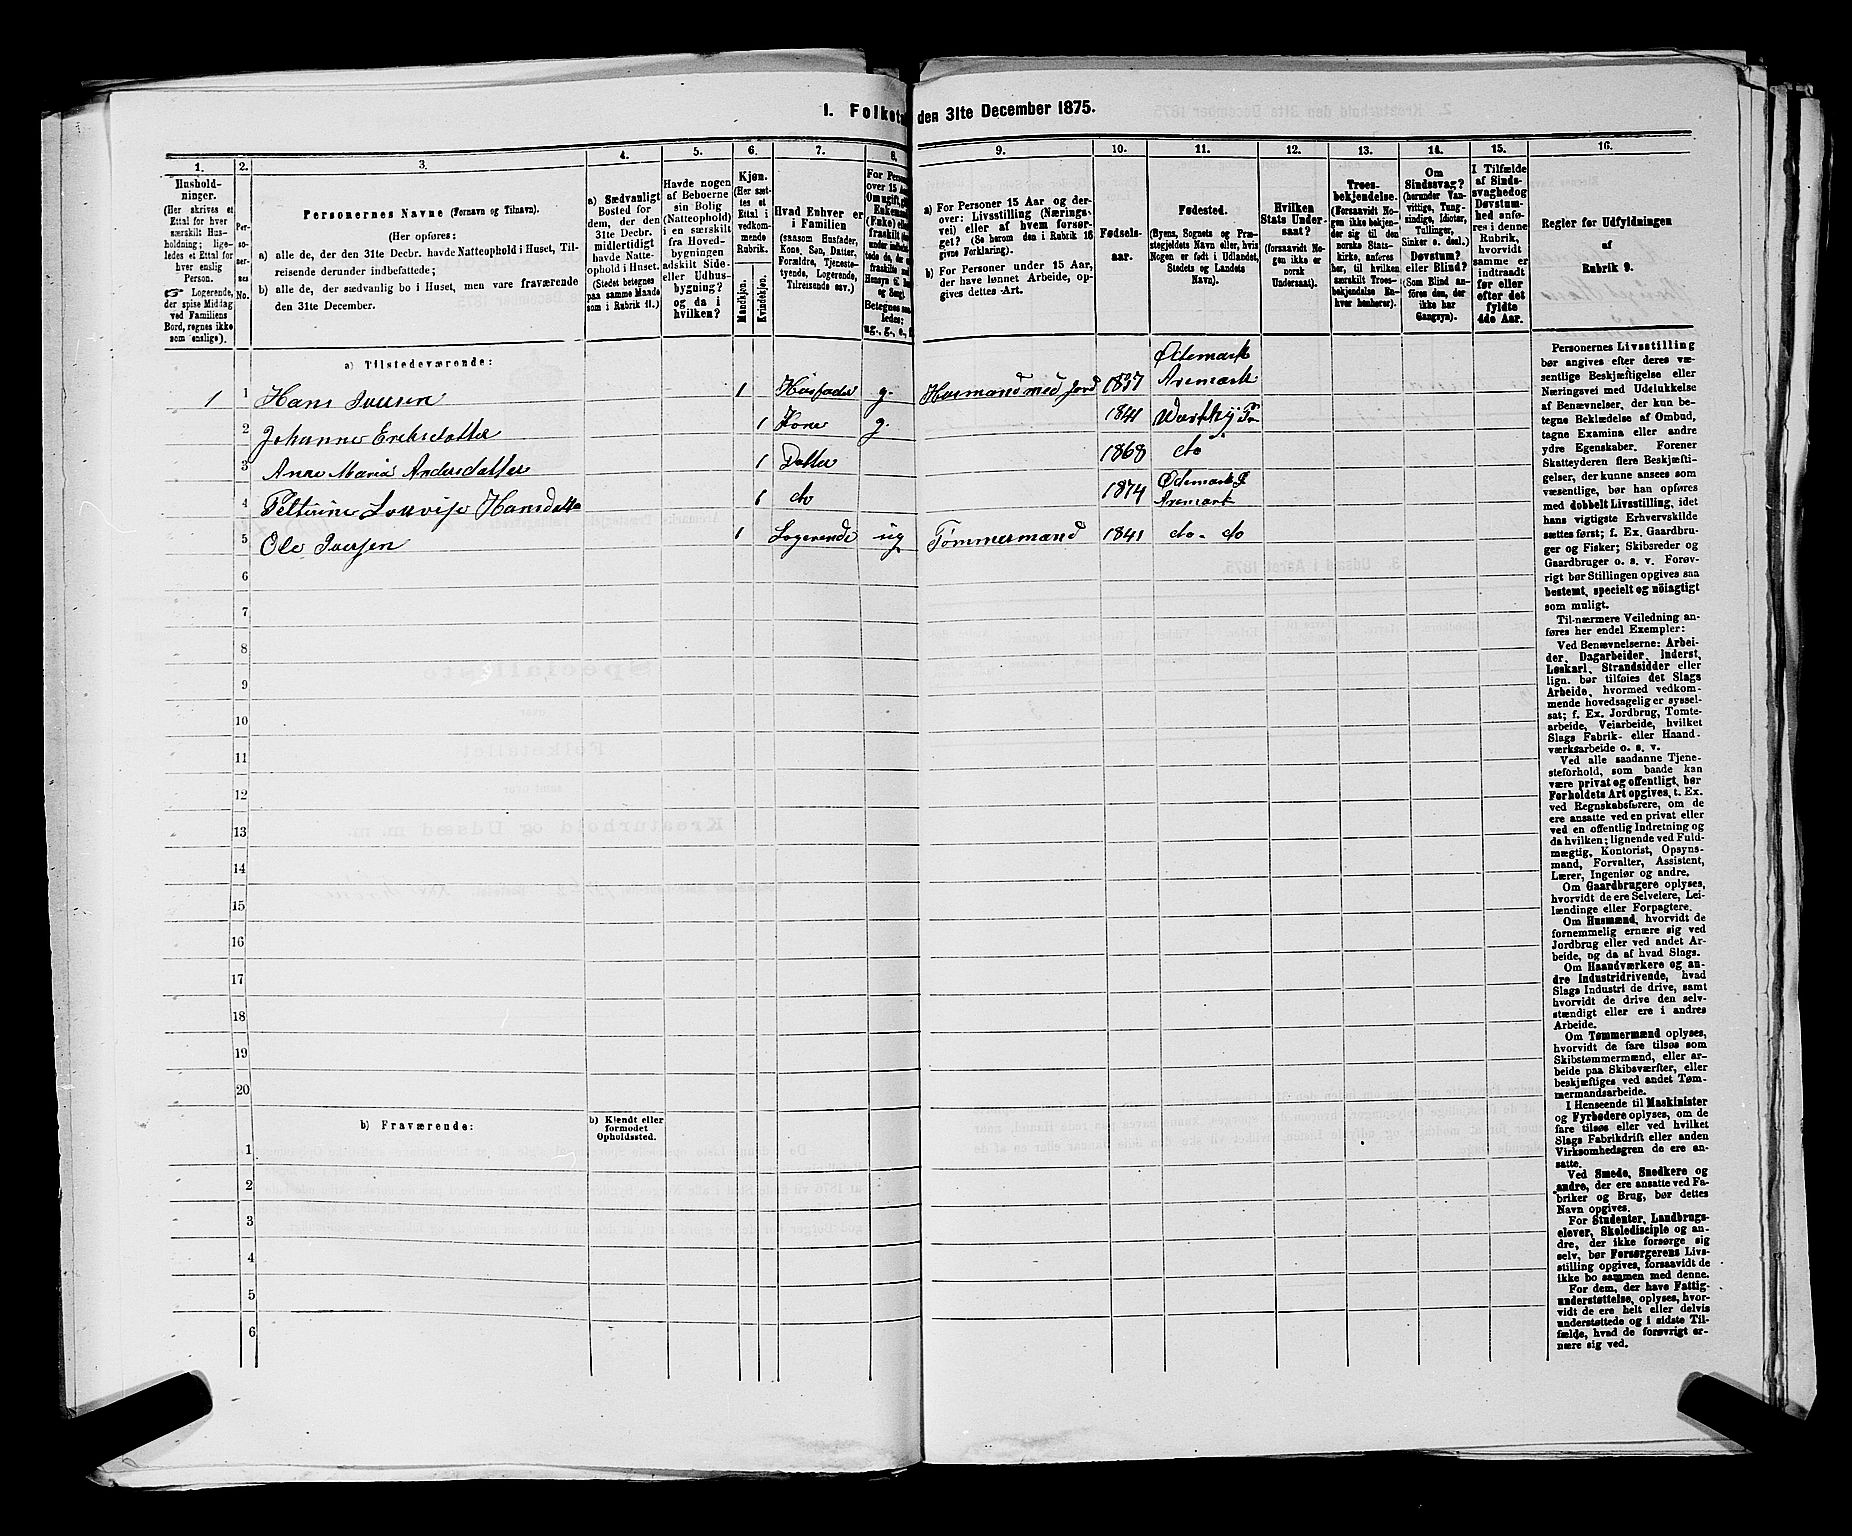 1. Folketal den 31te December 1875.
1.
Hushold-
ninger.
(Her skrives et
Ettal for hver
særskilt Hus-
holdning; lige-
ledes et Ettal for
hver enslig
Person.
Logerende,
der spise Middag
ved Familiens
Bord, regnes ikke
som enslige).
2.
Per-
so-
ner-
nes
No.
3.
Personernes Navne (Fornavn og Tilnavn).
(Her opføres:
a) alle de, der den 31te Decbr. havde Natteophold i Huset, Til-
reisende derunder indbefattede;
b) alle de, der sædvanlig bo i Huset, men vare fraværende
den 31te December.
4.
a) Sædvanligt
Bosted for
dem, der den
31te Decbr.
midlertidigt
havde Natte-
ophold i Huset.
(Stedet betegnes
paa samme Maade
som i Rubrik 11.)
5.
Havde nogen
af Beboerne
sin Bolig
(Natteophold)
i en særskilt
fra Hoved-
bygningen
adskilt Side-
eller Udhus-
bygning?
og da i
hvilken?
6.
Kjøn.
(Her sæt-
tes et
Ettal i
vedkom-
mende
Rubrik.)
Mandkjøn.
Kvindekjøn.
7.
Hvad Enhver er
i Familien
(saasom Husfader,
Kone, Søn, Datter,
Forældre, Tjeneste-
tyende, Logerende,
Tilreisende osv.)
8.
9.
a) For Personer 15 Aar og der-
over: Livsstilling (Nærings-
vei) eller af hvem forsør-
get? (Se herom den i Rubrik 16
givne Forklaring).
b) For Personer under 15 Aar,
der have lønnet Arbeide, op-
gives dettes Art.
10.
Fødsels-
aar.
11.
Fødested.
(Byens, Sognets og Præ-
stegjeldets Navn eller, hvis
Nogen er født i Udlandet,
Stedets og Landets
Navn).
12.
Hvilken
Stats Under-
saat?
(forsaavidt No-
gen ikke er
norsk
Undersaat).
13.
Troes-
bekjendelse.
(Forsaavidt No-
gen ikke bekjen-
der sig til den
norske Stats-
kirke, anføres
her, til hvilken
særskilt Troes-
bekjendelse En-
hver henhører).
14.
Om
Sindssvag?
(herunder Van-
vittige, Tung-
sindige, Idioter,
Tullinger,
Sinker o. desl.)
Døvstum?
eller Blind?
(Som Blind an-
føres den, der
ikke har
Gangsyn).
15.
I Tilfælde
af Sinds-
svaghed og
Døvstum-
hed anfø-
res i denne
Rubrik,
hvorvidt
samme er
indtraadt
før eller
efter det
fyldte
4de Aar.
16.
Regler for Udfyldningen
af
Rubrik 9.
a) Tilstedeværende:
1 1 Hans Iversen 1 Husfader g. Husmand med Jord 1837 Ødemark Aremark
2 Johanne Eriksdatter 1 Kone g. 1841
3 Anne Maria Andersdatter 1 Datter 1868 do
4 Petterine Lovise Hansdatter 1 do 1874 Ødemark Aremark
5 Ole Iversen 1 Logerende ug Tømmermand 1841 do - do
6
7
8
9
10
11
12
13
14
15
16
17
18
19
20
b) Fraværende:
b) Kjendt eller
formodet
Opholdssted.
1
2
3
4
5
6
Personernes Livsstilling
bør angives efter deres væ-
sentlige Beskjæftigelse eller
Næringsvei med Udelukkelse
af Benævnelser, der kun be-
tegne Beklædelse af Ombud,
tagne Examina eller andre
ydre Egenskaber. Forener
Skatteyderen flere Beskjæfti-
gelser, der kunne ansees som
væsentlige, bør han opføres
med dobbelt Livsstilling, idet
hans vigtigste Erhvervskilde
sættes først; f. Ex. Gaardbru-
ger og Fisker; Skibsreder og
Gaardbruger o. s. v. Forøv-
rigt bør Stillingen opgives saa
bestemt, specielt og nöiagtigt
som muligt.
Til nærmere Veiledning an-
føres her endel Exempler:
Ved Benævnelserne: Arbei-
der, Dagarbeider, Inderst,
Løskarl, Strandsidder eller
lign. bør tilføies det Slags
Arbeide, hvormed vedkom-
mende hovedsagelig er syssel-
sat; f. Ex. Jordbrug, Tomte-
arbeide, Veiarbeide, hvilket
Slags Fabrik- eller Haand-
værksarbeide o. s. v.
Ved alle saadanne Tjene-
steforhold, som baade kan
være privat og offentligt, bør
Forholdets Art opgives, t. Ex.
ved Regnskabsførere, om de
ere ansatte ved en privat eller
ved en offentlig Indretning og
da hvilken; lignende ved Fuld-
mægtig, Kontorist, Opsyns-
mand, Forvalter, Assistent,
Lærer, Ingeniør og andre.
Om Gaardbrugere oplyses,
hvorvidt de ere Selveiere, Lei-
lændinge eller Forpagtere.
Om Husmænd, hvorvidt de
fornemmelig ernære sig ved
Jordbrug eller ved andet Ar-
beide, og da af hvad Slags.
Om Haandværkere og an-
dre Industridrivende, hvad
Slags Industri de drive, samt
hvorvidt de drive den selv-
stændigt eller ere i andres
Arbeide.
Om Tømmermænd oplyses,
hvorvidt de fare tilsøs som
Skibstømmermænd, eller ar-
beide paa Skibsværfter, eller
beskjæftiges ved andet Tøm-
mermandsarbeide.
I Henseende til Maskinister
og Fyrbødere oplyses, om de
fare tilsøs eller ved hvilket
Slags Fabrikdrift eller anden
Virksomhedsgren de ere an-
satte.
Ved Smede, Snedkere og
andre, der ere ansatte ved Fa-
briker og Brug, bør dettes
Navn opgives.
For Studenter, Landbrugs-
elever, Skoledisciple og an-
dre, der ikke forsørge sig
selv, bør Forsørgerens Livs-
stilling opgives, forsaavidt de
ikke bo sammen med denne.
For dem, der have Fattig-
understøttelse, oplyses, hvor-
vidt de ere helt eller delvis
understøttede og i sidste Til-
fælde, hvad de forøvrigt er-
nære sig ved.